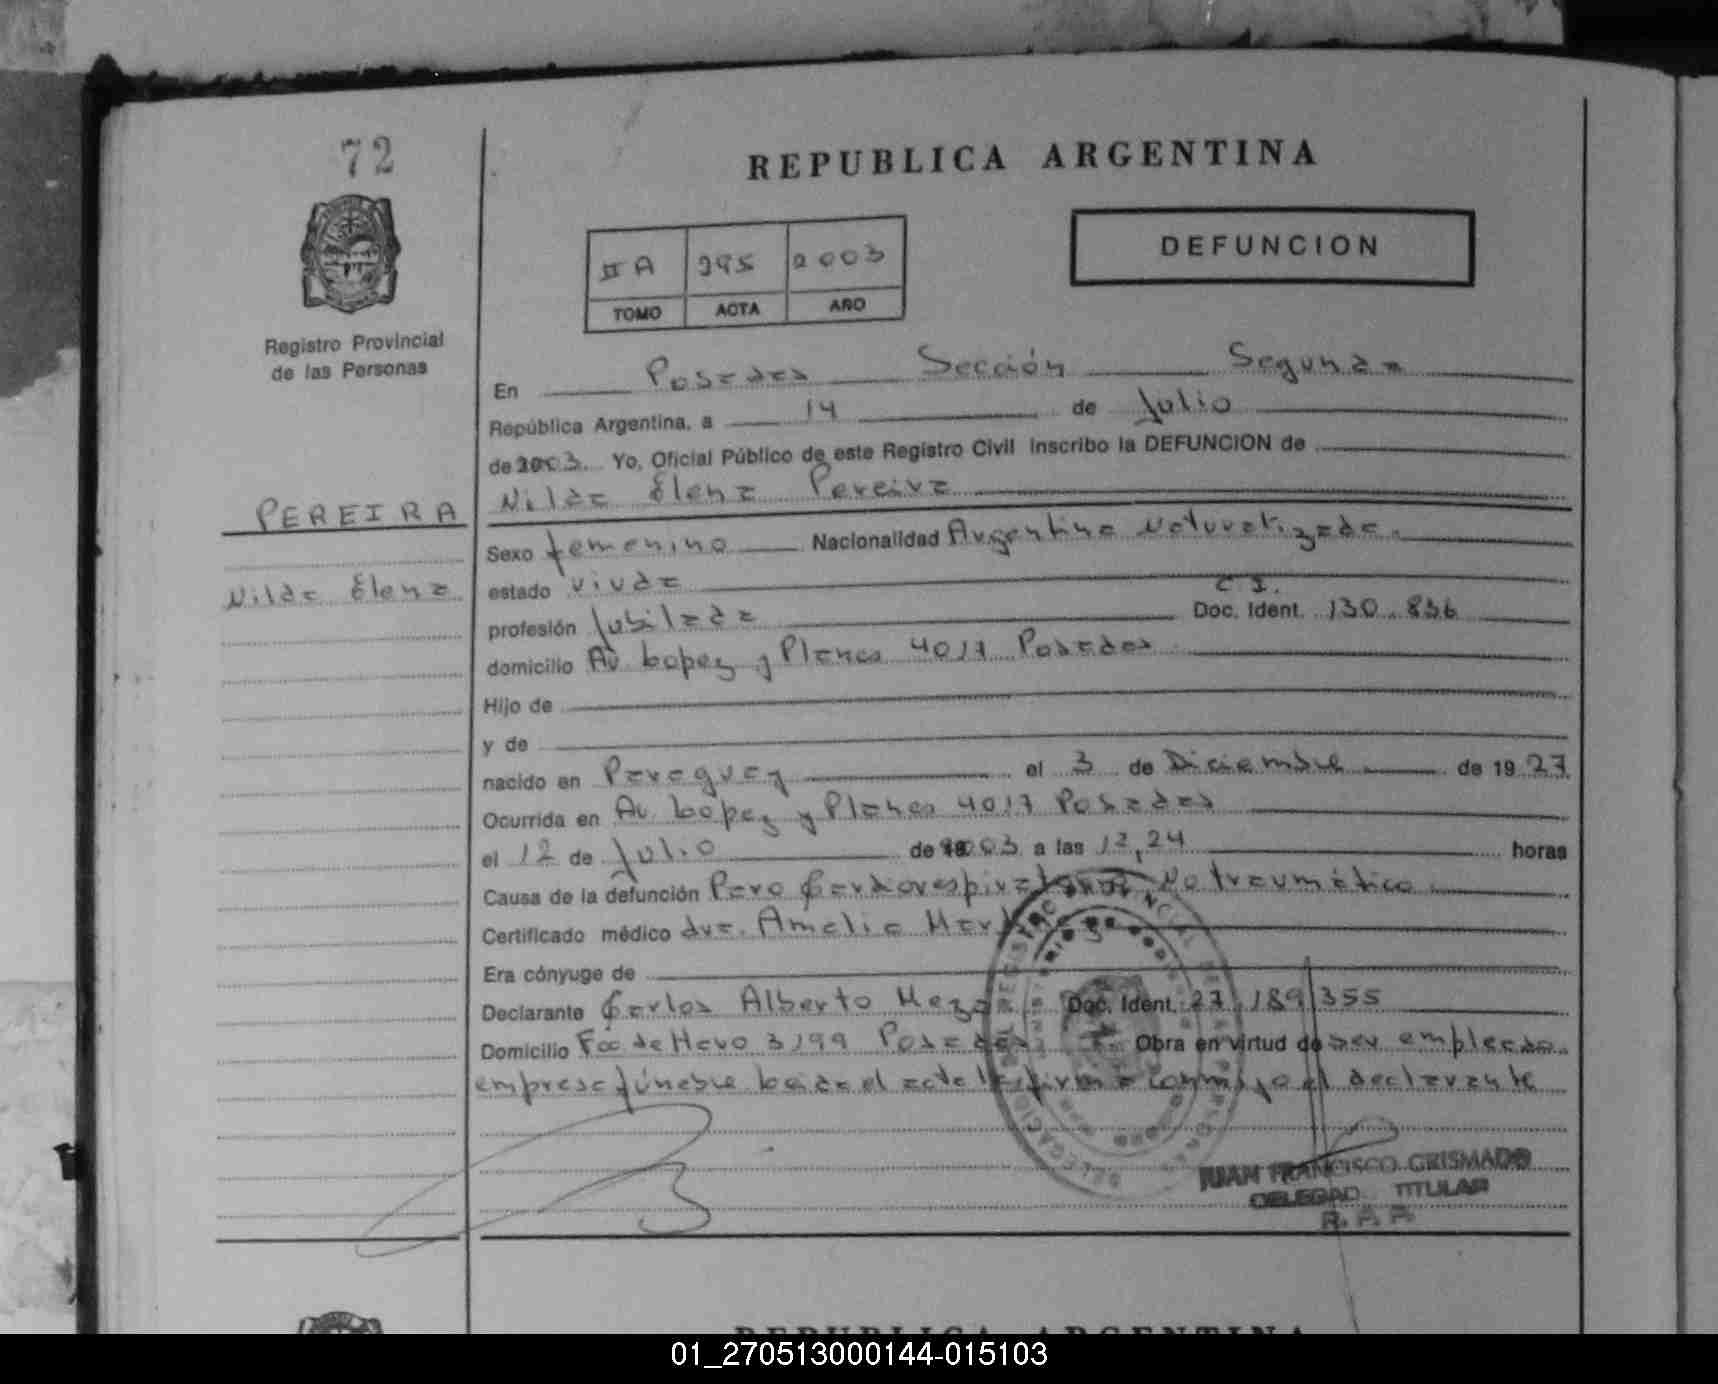 72
REPUBLICA ARGENTINA
DEFUNCION
II A 395 2003
TOMO ACTA AÑO
Registro Provincial
de las Personas
En Posadas Sección Segunda
República Argentina, a 14 de Julio
de 2003. Yo, Oficial Público de este Registro Civil inscribo la DEFUNCION de
Nilda Elena Pereira
PEREIRA
Nilda Elena
Sexo femenino Nacionalidad Argentina Naturalizada.
estado viuda
C I.
profesión Jubilada Doc. Ident. 130.836
domicilio Av Lopez y Planes 4017 Posadas
Hijo de
y de
nacido en Paraguay el 3 de Diciembre de 1927
Ocurrida en Av. Lopez y Planes 4017 Posadas
el 12 de Julio de 2003 a las 12,24 horas
Causa de la defunción Paro Cardiorespiratorio No traumático
Certificado médico dra. Amalia
Era cónyuge de
Declarante Carlos Alberto Meza Doc. Ident. 27.189.355
Domicilio Fco de Haro 3199 Posadas Obra en virtud de ser empleado
empresa fúnebre leida el acta la firma conmigo el declarante
JUAN FRANCISCO GRISMADO
DELEGADO TITULAR
REPUBLICA ARGENTINA
01_270513000144-015103